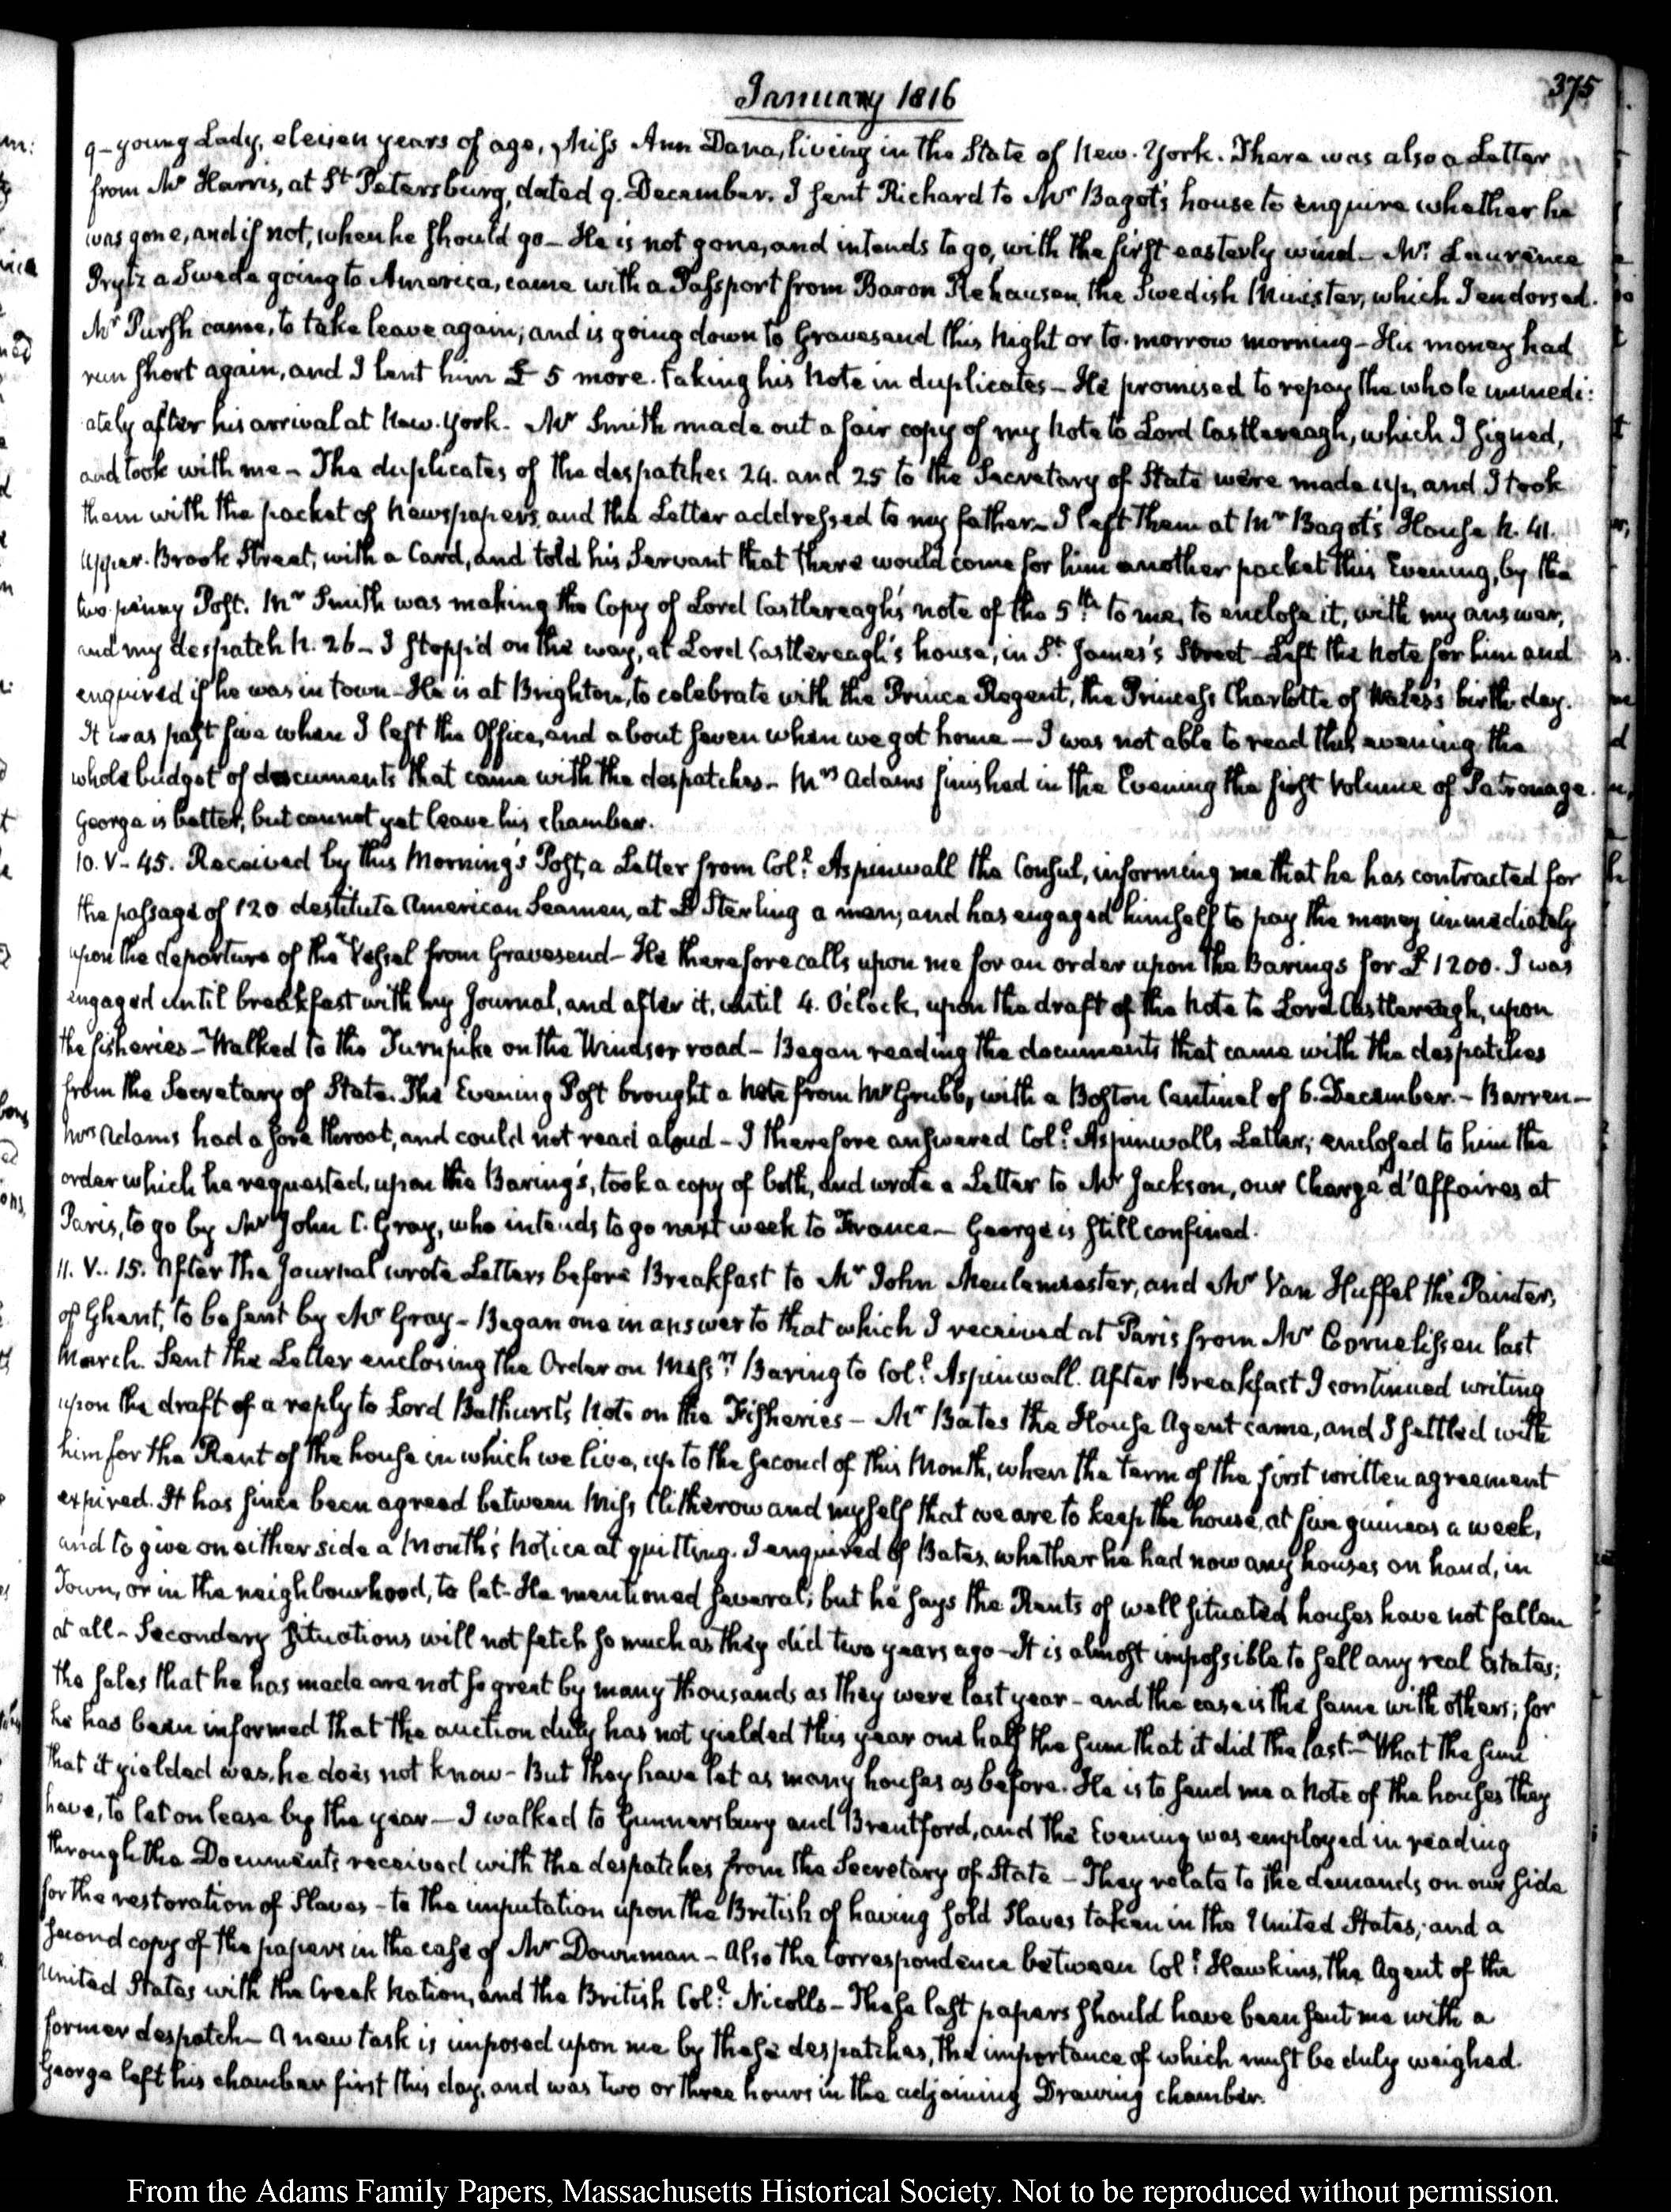 January 1816
375
9— young Lady, eleven years of age, Miss Ann Dana, living in the State of New-York. There was also a Letter
from Mr Harris, at St Petersburg, dated 9. December. I sent Richard to Mr Bagot's house to enquire whether he
was gone, and if not, when he should go— He is not gone, and intends to go, with the first easterly wind— Mr Laurence
Prytz a Swede going to America, came with a Passport from Baron Rehausen, the Swedish Minister, which I endorsed.
Mr Pursh came, to take leave again; and is going down to Gravesend this Night or to-morrow morning— His money had
run short again, and I lent him £5 more. taking his Note in duplicates— He promised to repay the whole immedi:
ately after his arrival at New-York. Mr Smith made out a fair copy of my Note to Lord Castlereagh, which I signed,
and took with me— The duplicates of the despatches 24. and 25 to the Secretary of State were made up, and I took
them with the packet of Newspapers and the Letter addressed to my father— I left them at Mr Bagot's House N. 41.
Upper-Brook Street, with a Card, and told his Servant that there would come for him another packet this Evening, by the
two-penny Post. Mr Smith was making the Copy of Lord Castlereagh's note of the 5th to me, to enclose it, with my answer,
and my despatch N. 26— I stopp'd on the way, at Lord Castlereagh's house, in St James's Street— Left the Note for him and
enquired if he was in town— He is at Brighton, to celebrate with the Prince Regent, the Princess Charlotte of Wales's birth day.
It was past five when I left the Office, and about seven when we got home— I was not able to read this evening the
whole budget of documents that came with the despatches— Mrs Adams finished in the Evening the first Volume of Patronage.
George is better, but cannot yet leave his chamber.
10. V-45. Received by this Morning's Post, a Letter from Coll. Aspinwall the Consul, informing me that he has contracted for
the passage of 120 destitute American Seamen, at £ Sterling a man; and has engaged himself to pay the money immediately
upon the departure of the Vessel from Gravesend— He therefore calls upon me for an order upon the Barings for £1200. I was
engaged until breakfast with my Journal, and after it, until 4. O'Clock, upon the draft of the Note to Lord Castlereagh, upon
the fisheries— Walked to the Turnpike on the Windsor road— Began reading the documents that came with the despatches
from the Secretary of State. The Evening Post brought a Note from Mr Grubb, with a Boston Centinel of 6. December.— Barren—
Mrs Adams had a sore throat, and could not read aloud— I therefore answered Coll. Aspinwalls Letter; enclosed to him the
order which he requested, upon the Baring's, took a copy of both, and wrote a Letter to Mr Jackson, our Chargé d'Affaires at
Paris, to go by Mr John C. Gray, who intends to go next week to France— George is still confined.
11. V.. 15. After the Journal wrote Letters before Breakfast to Mr John Meulemeester, and Mr Van Huffel the Painter,
of Ghent, to be sent by Mr Gray— Began one in answer to that which I received at Paris from Mr Cornelissen last
March. Sent the Letter enclosing the Order on Messrs Baring to Coll. Aspinwall. After Breakfast I continued writing
upon the draft of a reply to Lord Bathurst's Note on the Fisheries— Mr Bates the House Agent came, and I settled with
him for the Rent of the house in which we live, up to the second of this Month, when the term of the first written agreement
expired. It has since been agreed between Miss Clitherow and myself that we are to keep the house, at five guineas a week,
and to give on either side a Month's Notice at quitting. I enquired of Bates, whether he had now any houses on hand, in
Town, or in the neighbourhood, to let— He mentioned several; but he says the Rents of well situated houses have not fallen
at all— Secondary situations will not fetch so much as they did two years ago— It is almost impossible to sell any real Estates;
the sales that he has made are not so great by many thousands as they were last year— and the case is the same with others; for
he has been informed that the auction duty has not yielded this year one half the sum that it did the last— What the sum
that it yielded was, he does not know— But they have let as many houses as before. He is to send me a Note of the houses they
have, to let on lease by the year— I walked to Gunnersbury and Brentford, and the Evening was employed in reading
through the Documents received with the despatches from the Secretary of State— They relate to the demands on our side
for the restoration of Slaves— to the imputation upon the British of having sold Slaves taken in the United States; and a
second copy of the papers in the case of Mr Downman— Also the Correspondence between Coll. Hawkins, the Agent of the
United States with the Creek Nation, and the British Coll. Nicolls— These last papers should have been sent me with a
former despatch— A new task is imposed upon me by these despatches, the importance of which must be duly weighed.
George left his chamber first this day, and was two or three hours in the adjoining Drawing chamber.
From the Adams Family Papers, Massachusetts Historical Society. Not to be reproduced without permission.